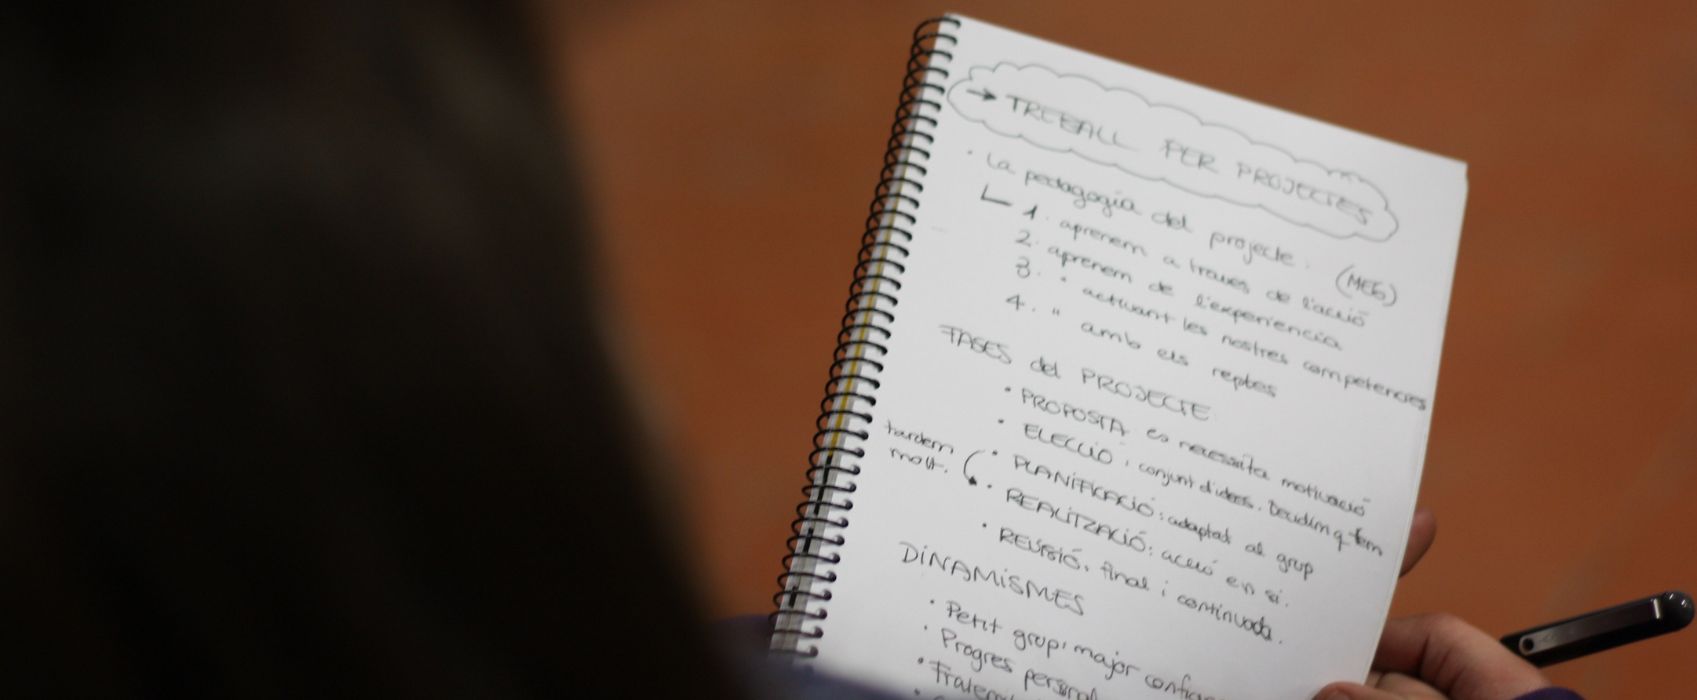 → TREBALL PER PROJECTES
· La pedagogia del projecte. (MEG)
1. aprenem a traves de l'acció
2. aprenem de l'experiencia
3. " activant les nostres competencies
4. " amb els reptes
FASES del PROJECTE
· PROPOSTA es necessita motivació
· ELECCIÓ, conjunt d'idees. Decidim q fem
tardem molt.
· PLANIFICACIÓ: adaptat al grup
· REALITZACIÓ: acció en si.
· REVISIÓ, final i continuada.
DINAMISMES
· Petit grup: major
· Progres personal